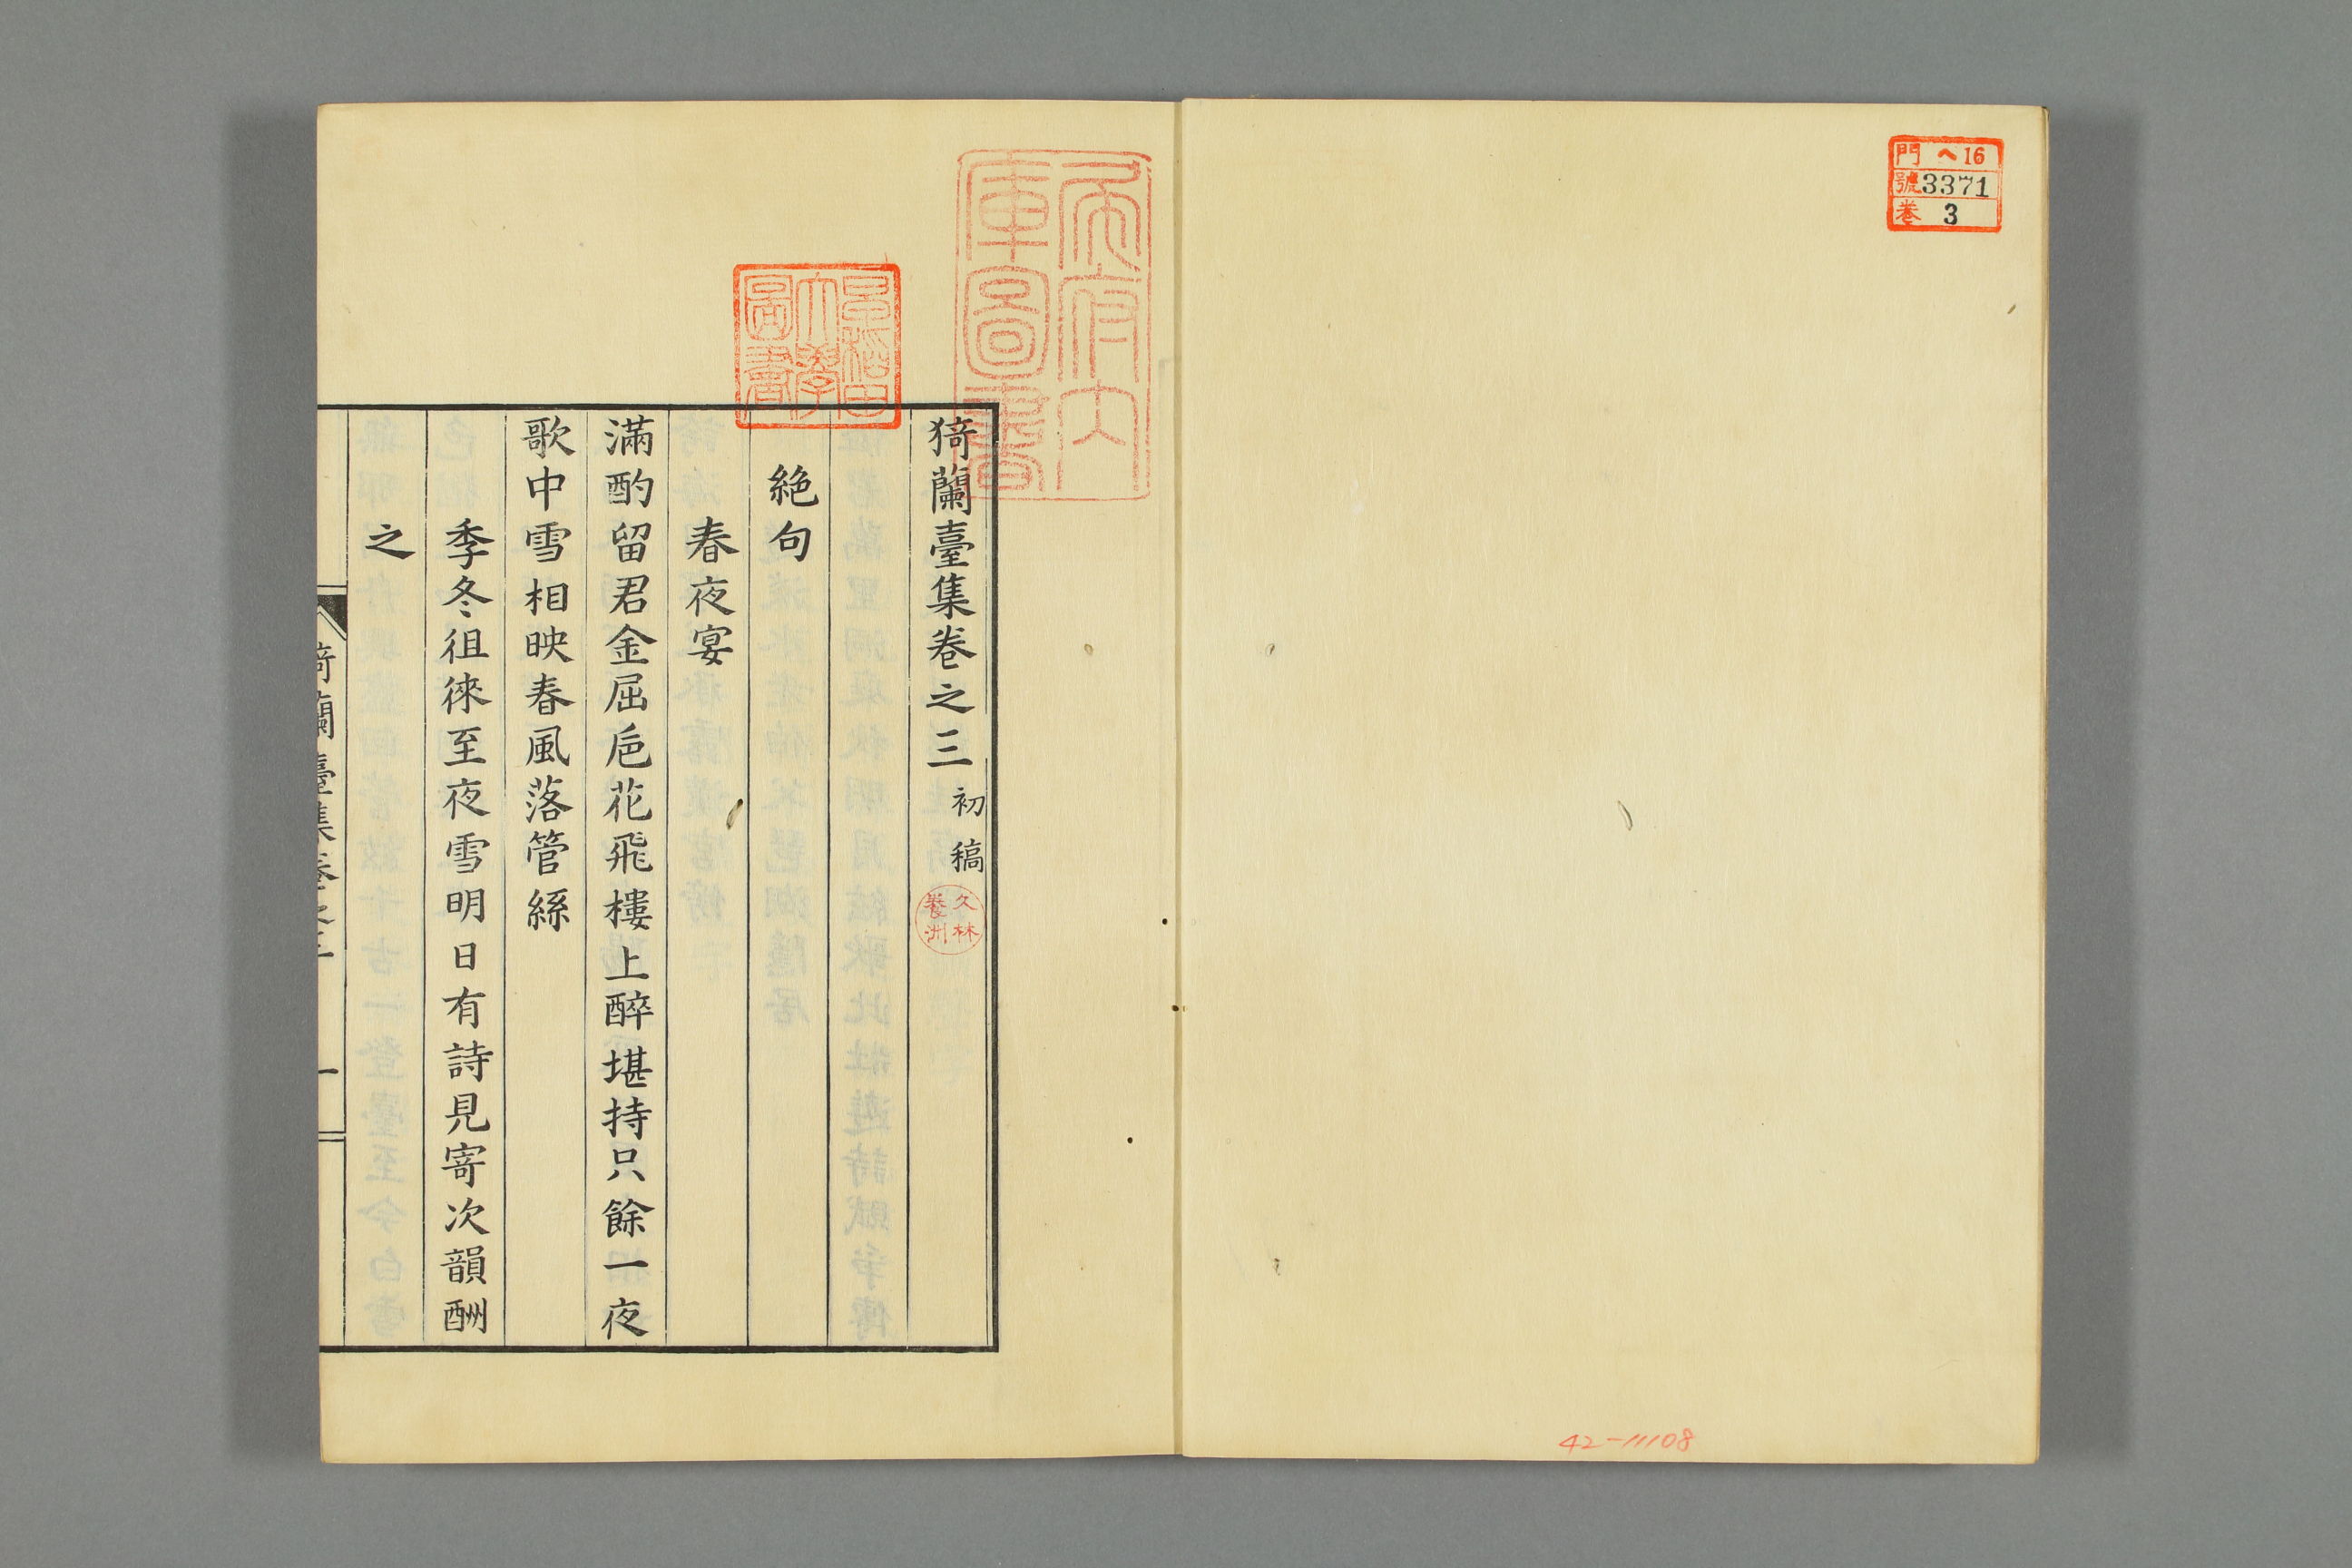 門 ヘ16
號 3371
巻 3
42-11108
猗蘭臺集巻之三 初稿
久林
養洲
絶句
春夜宴
滿酌留君金屈巵花飛樓上醉堪持只餘一夜
歌中雪相映春風落管絲
季冬徂徠至夜雪明日有詩見寄次韻酬
之
猗蘭臺集巻之三 一
早稲田
大學
圖書